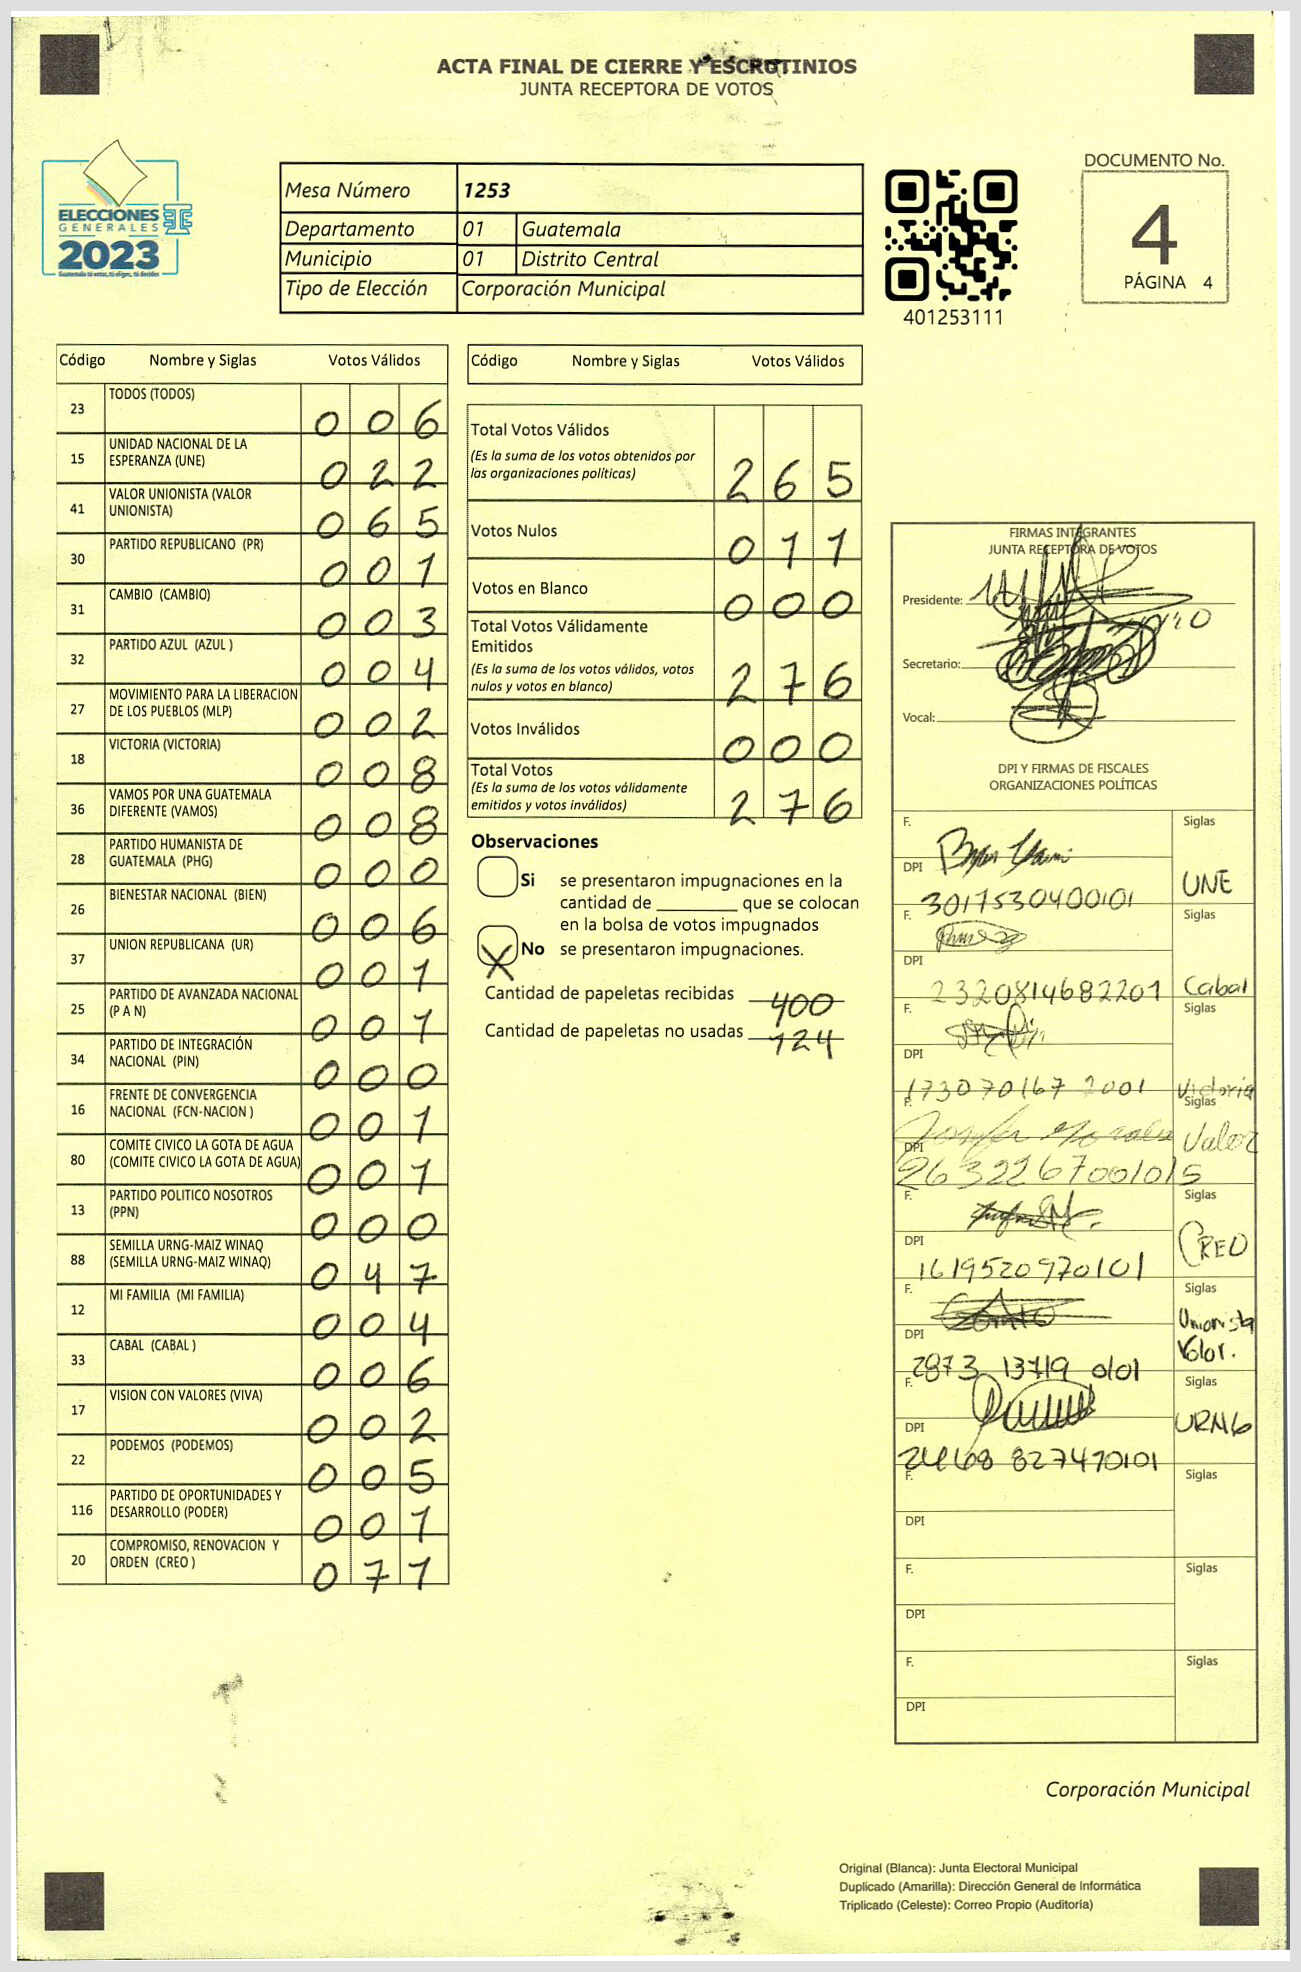 ACTA FINAL DE CIERRE Y ESCRUTINIOS
JUNTA RECEPTORA DE VOTOS
ELECCIONES
GENERALES
2023
Mesa Número 1253
Departamento 01 Guatemala
Municipio 01 Distrito Central
Tipo de Elección Corporación Municipal
401253111
DOCUMENTO No.
4
PÁGINA 4
Código Nombre y Siglas Votos Válidos
23 TODOS (TODOS) 0 0 6
15 UNIDAD NACIONAL DE LA ESPERANZA (UNE) 0 2 2
41 VALOR UNIONISTA (VALOR UNIONISTA) 0 6 5
30 PARTIDO REPUBLICANO (PR) 0 0 1
31 CAMBIO (CAMBIO) 0 0 3
32 PARTIDO AZUL (AZUL ) 0 0 4
27 MOVIMIENTO PARA LA LIBERACION DE LOS PUEBLOS (MLP) 0 0 2
18 VICTORIA (VICTORIA) 0 0 8
36 VAMOS POR UNA GUATEMALA DIFERENTE (VAMOS) 0 0 8
28 PARTIDO HUMANISTA DE GUATEMALA (PHG) 0 0 0
26 BIENESTAR NACIONAL (BIEN) 0 0 6
37 UNION REPUBLICANA (UR) 0 0 1
25 PARTIDO DE AVANZADA NACIONAL (P A N) 0 0 1
34 PARTIDO DE INTEGRACIÓN NACIONAL (PIN) 0 0 0
16 FRENTE DE CONVERGENCIA NACIONAL (FCN-NACION ) 0 0 1
80 COMITE CIVICO LA GOTA DE AGUA (COMITE CIVICO LA GOTA DE AGUA) 0 0 1
13 PARTIDO POLITICO NOSOTROS (PPN) 0 0 0
88 SEMILLA URNG-MAIZ WINAQ (SEMILLA URNG-MAIZ WINAQ) 0 4 7
12 MI FAMILIA (MI FAMILIA) 0 0 4
33 CABAL (CABAL ) 0 0 6
17 VISION CON VALORES (VIVA) 0 0 2
22 PODEMOS (PODEMOS) 0 0 5
116 PARTIDO DE OPORTUNIDADES Y DESARROLLO (PODER) 0 0 1
20 COMPROMISO, RENOVACION Y ORDEN (CREO ) 0 7 1
Código Nombre y Siglas Votos Válidos
Total Votos Válidos
(Es la suma de los votos obtenidos por
las organizaciones políticas) 2 6 5
Votos Nulos 0 1 1
Votos en Blanco 0 0 0
Total Votos Válidamente
Emitidos
(Es la suma de los votos válidos, votos
nulos y votos en blanco) 2 7 6
Votos Inválidos 0 0 0
Total Votos
(Es la suma de los votos válidamente
emitidos y votos inválidos) 2 7 6
Observaciones
Si se presentaron impugnaciones en la
cantidad de ________ que se colocan
en la bolsa de votos impugnados
X No se presentaron impugnaciones.
Cantidad de papeletas recibidas 400
Cantidad de papeletas no usadas 124
FIRMAS INTEGRANTES
JUNTA RECEPTORA DE VOTOS
Presidente:
Secretario:
Vocal:
DPI Y FIRMAS DE FISCALES
ORGANIZACIONES POLÍTICAS
F. Siglas
DPI 3017530400101 UNE
F. Siglas
DPI 2320814682201 Cabal
F. Siglas
DPI 173070167 2001 Victoria
F. Siglas
DPI 2632267001015 Valor
F. Siglas
DPI 1619520970101 CREO
F. Siglas
DPI 2873 13719 0101 Unionista Valor.
F. Siglas
DPI 2468 827470101 URNG
F. Siglas
DPI
F. Siglas
DPI
F. Siglas
DPI
Corporación Municipal
Original (Blanca): Junta Electoral Municipal
Duplicado (Amarilla): Dirección General de Informática
Triplicado (Celeste): Correo Propio (Auditoría)